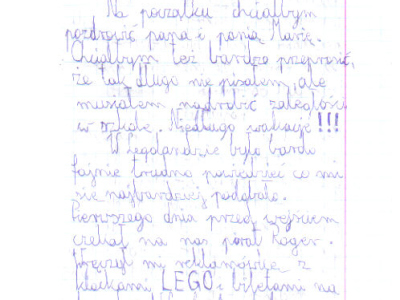 Na początku chciałbym
pozdrowić pana i panią Marię.
Chciałbym też bardzo przeprosić,
że tak długo nie pisałem, ale
musiałem nadrobić zaległości
w szkole. Niedługo wakacje!!!
W Legolandzie było bardzo
fajnie trudno powiedzieć co mi
się najbardziej podobało.
Pierwszego dnia przed wejściem
czekał na nas pirat Roger.
Wręczył mi reklamówkę z
klockami LEGO i biletami na